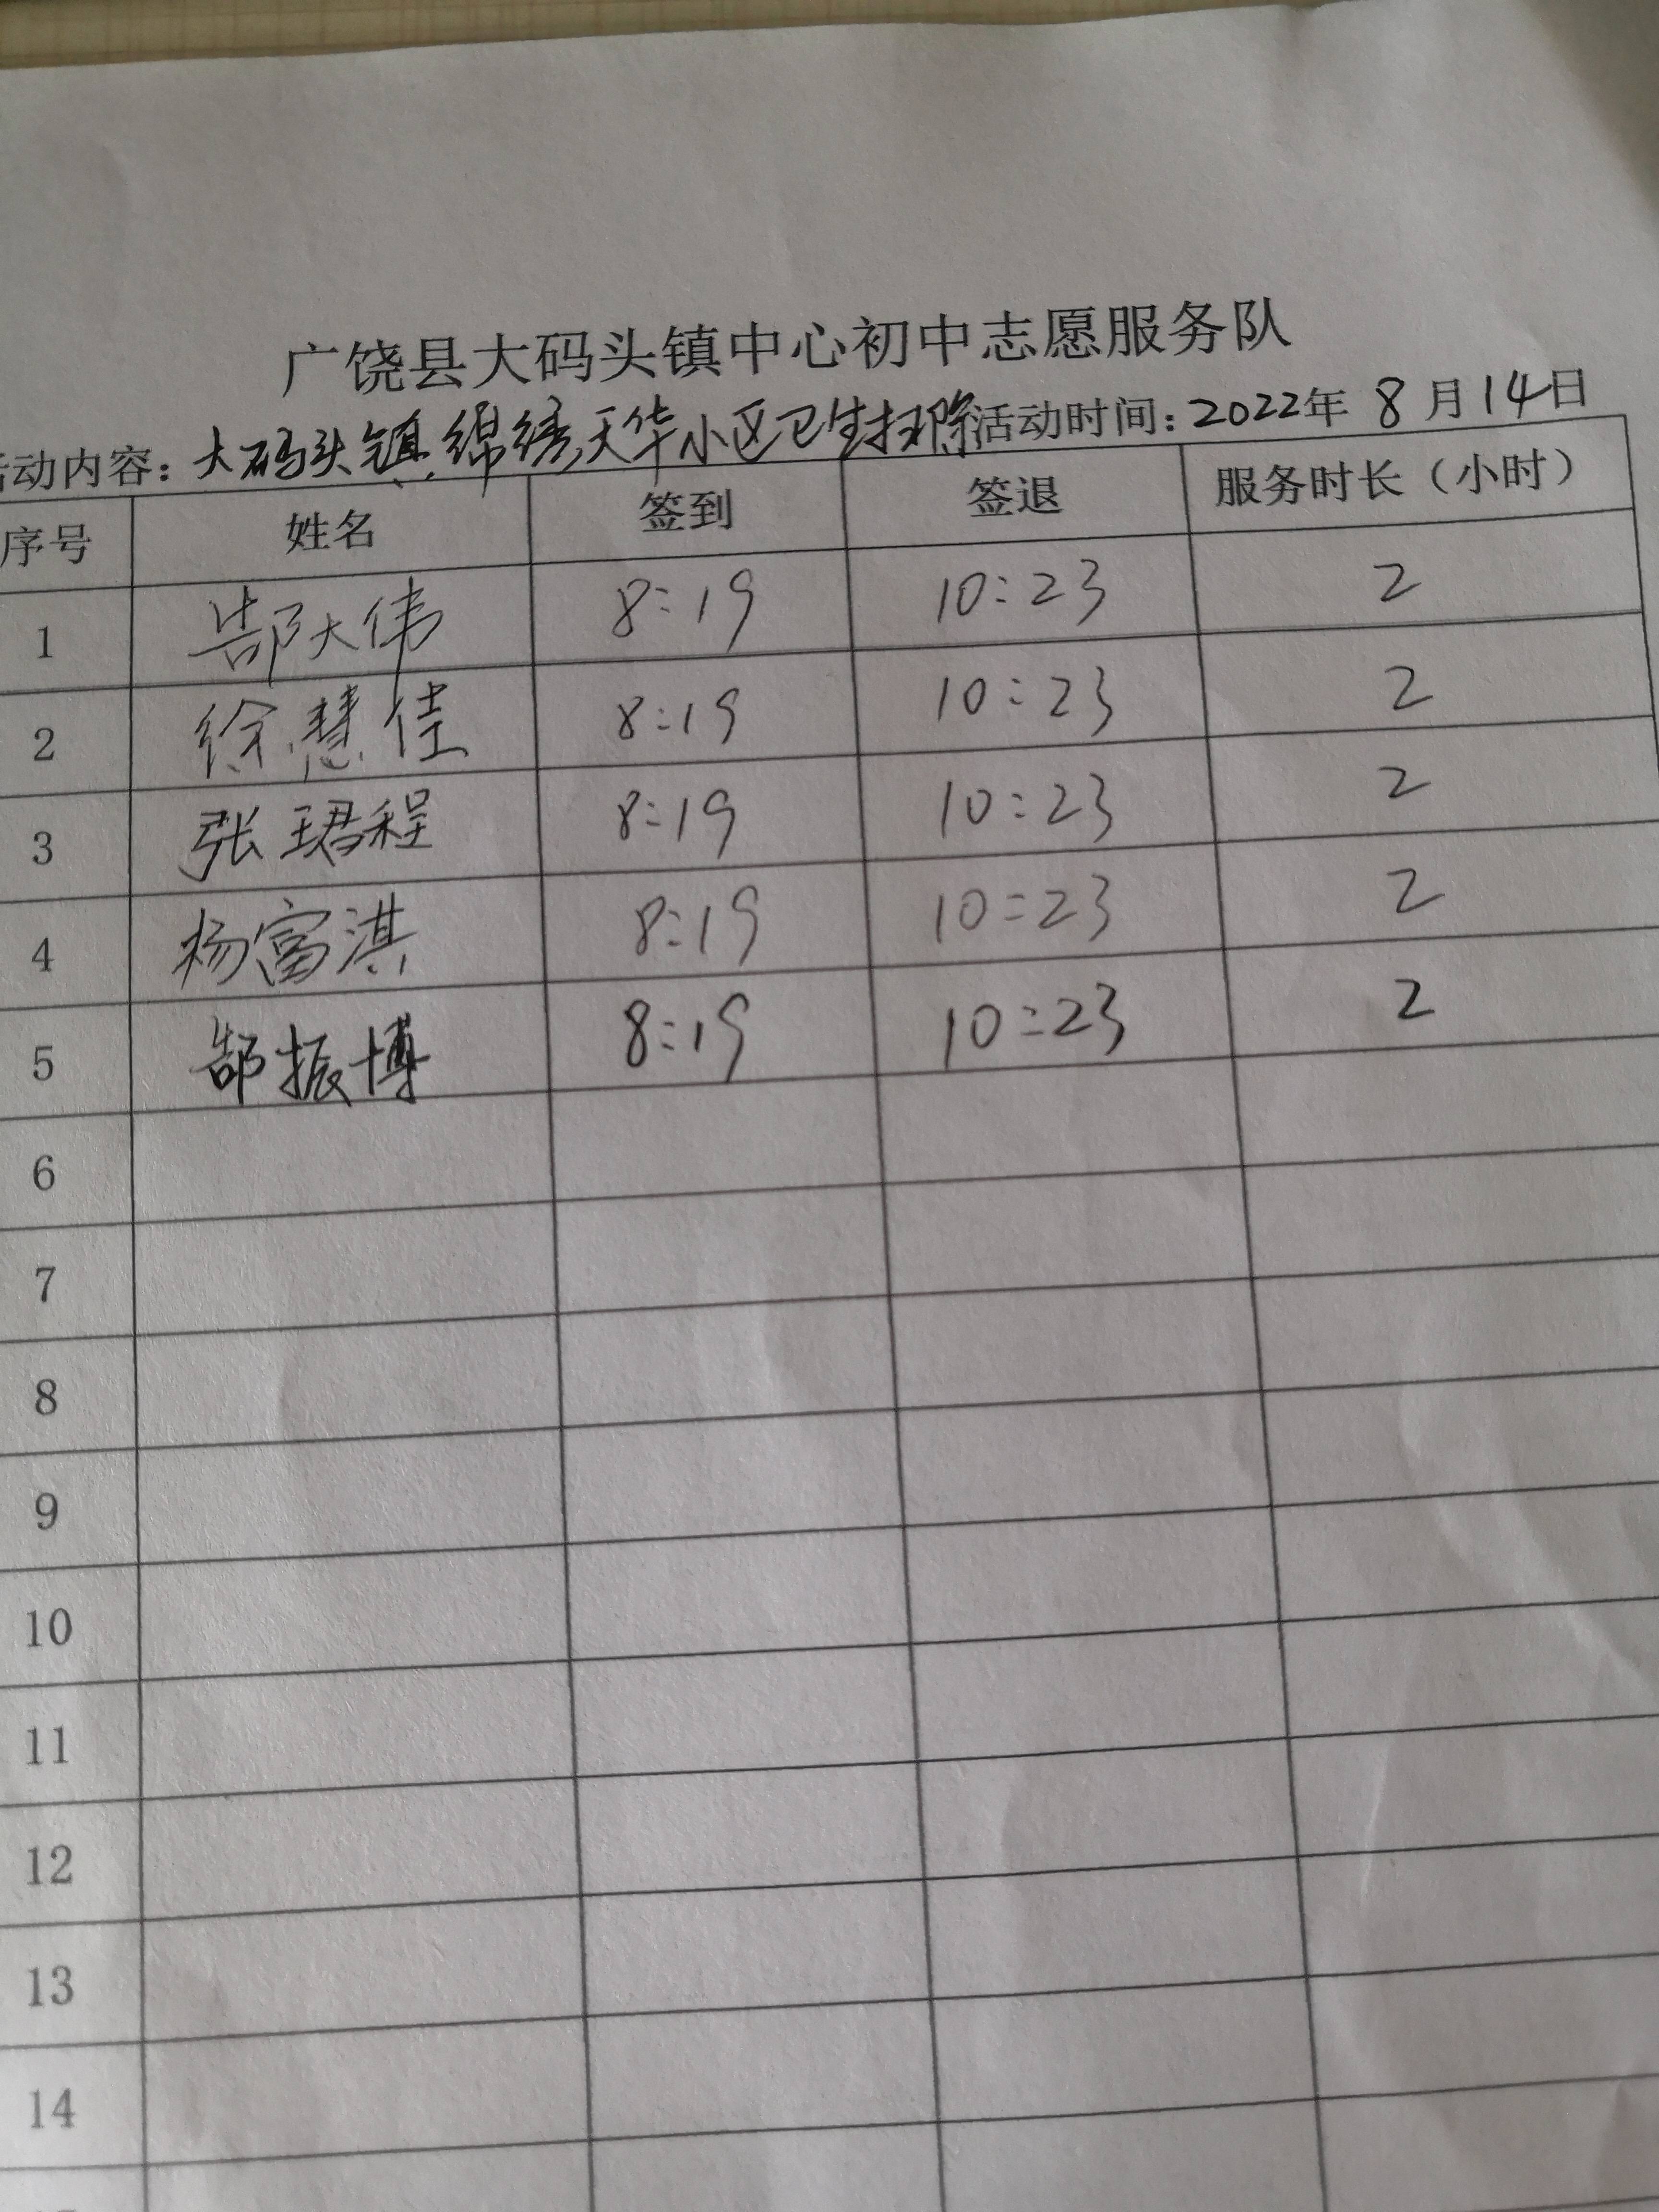 广饶县大码头镇中心初中志愿服务队
活动内容：大码头镇锦绣天华小区卫生扫除活动时间：2022年 8 月 14日
序号 姓名 签到 签退 服务时长（小时）
1 郜大伟 8:19 10:23 2
2 徐慧佳 8:19 10:23 2
3 张珺程 8:19 10:23 2
4 杨富淇 8:19 10:23 2
5 郜振博 8:19 10:23 2
6
7
8
9
10
11
12
13
14